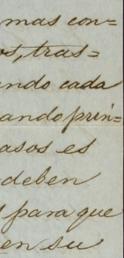 mas con=
os, tras=
ando cada
ando prin=
asos es
deben
para que
en su